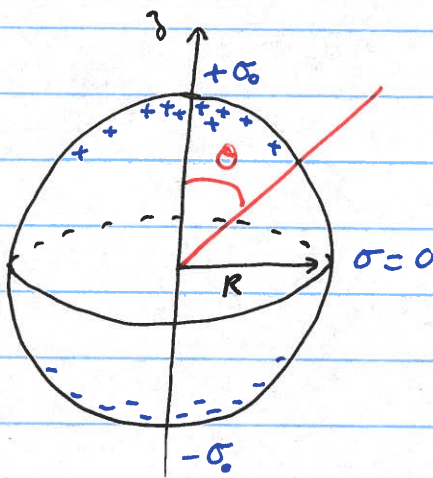 z
+σ₀
θ
R
σ = 0
-σ₀